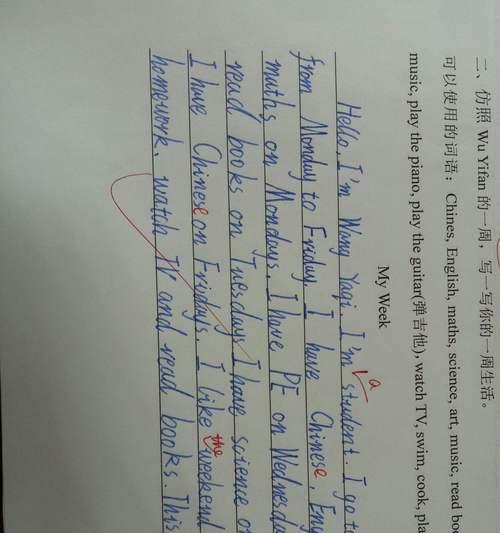 二、仿照 Wu Yifan 的一周，写一写你的一周生活。
可以使用的词语： Chines, English, maths, science, art, music, read
music, play the piano, play the guitar(弹吉他), watch TV, swim, cook,
My Week
Hello, I'm Wang Yaqi. I'm a student. I go
from Monday to Friday. I have Chinese,
maths on Mondays. I have PE on
read books on Tuesday. I have science
I have Chinese on Fridays. I like the weekend
homework, watch TV and read books. This